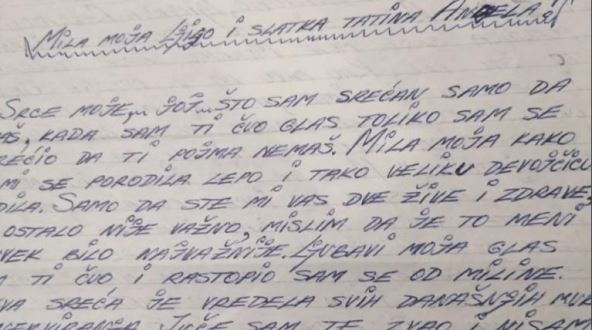 MILA MOJA I SLATKA TATINA ANĐELA!!
SRCE MOJE,,, JOJ...ŠTO SAM SREĆAN SAMO DA
KADA SAM TI ČUO GLAS TOLIKO SAM SE
DA TI POJMA NEMAŠ. MILA MOJA KAKO
MI SE PORODILA LEPO I TAKO VELIKU DEVOJČICU
SAMO DA STE MI VAS DVE ŽIVE I ZDRAVE,
OSTALO NIJE VAŽNO, MISLIM DA JE TO MENI
BILO NAJVAŽNIJE. LJUBAVI MOJA GLAS
TI ČUO I RASTOPIO SAM SE OD MILINE.
SREĆA JE VREDELA SVIH DANAŠNJIH
JUČE SAM TE ZVAO I NISAM